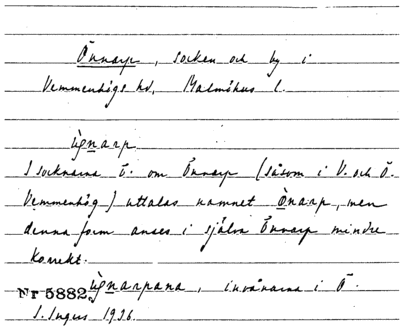 Önnarp, socken och by i
Vemmenhögs hd, Malmöhus l.
ùɐnarp
I socknarna Ö. om Önnarp (såsom i V. och Ö.
Vemmenhög) uttalas namnet Ònarp, men
denna form anses i själva Önnarp mindre
korrekt.
Nr 5882. ùɐnarpana, invånarna i Ö.
S. Ingers 1936.